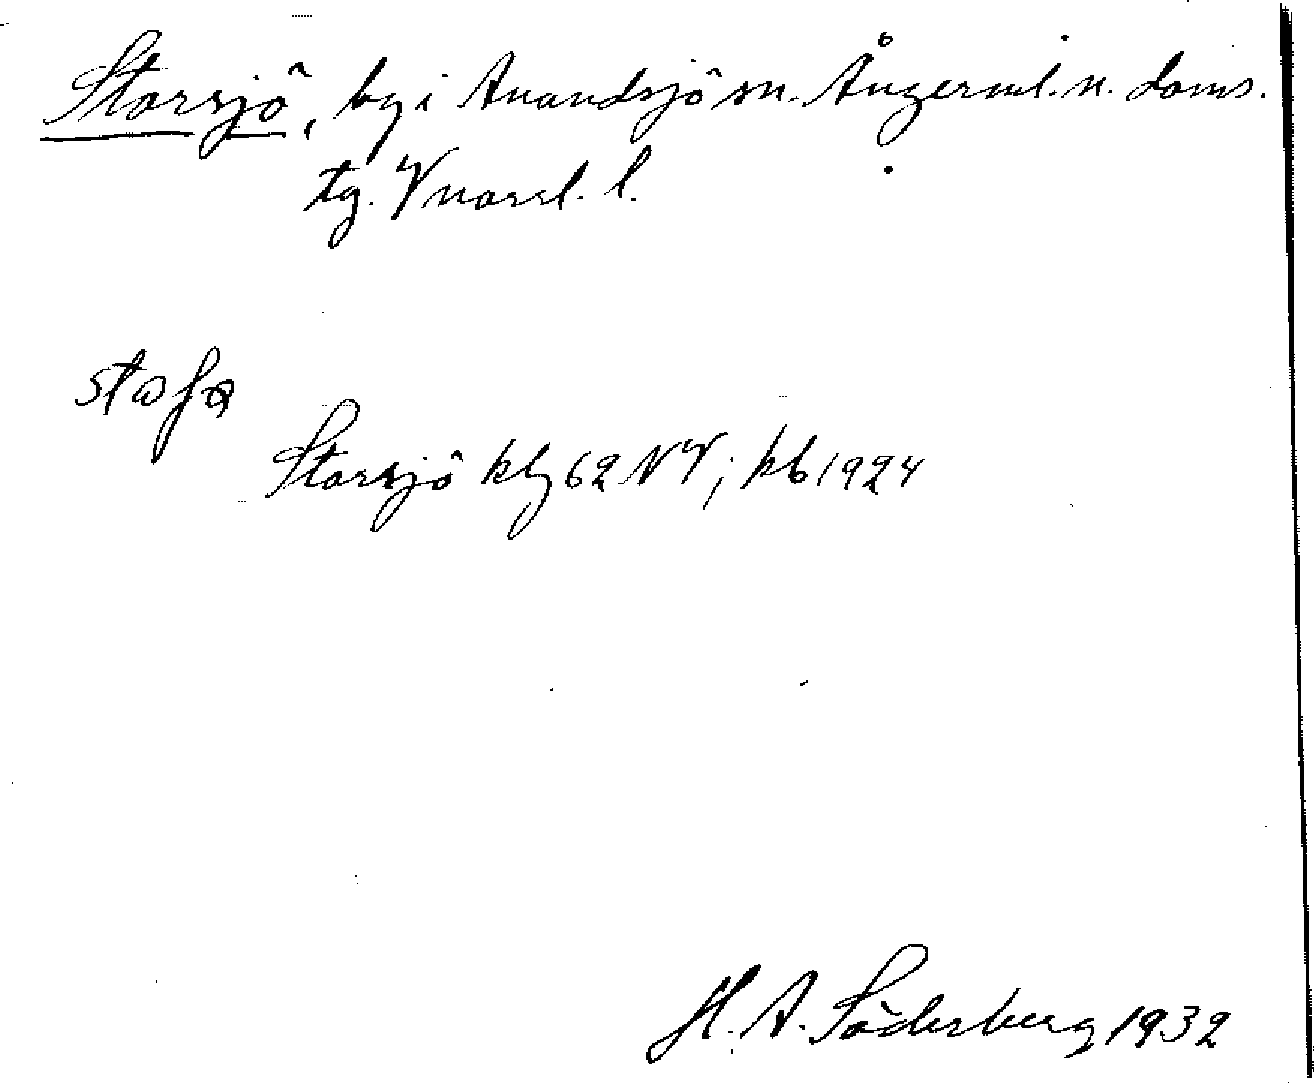 Storsjö, by i Anundsjö sn. Ångerml. n. doms.
tg. Vnorrl. l.
Storsjö kbg 62 NV; kb 1924
H. A. Söderberg 1932